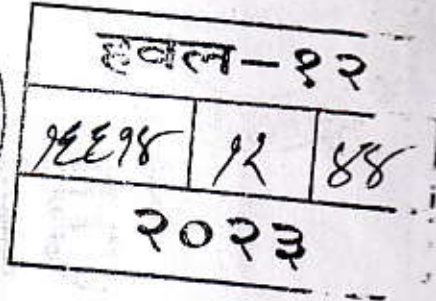 हवल-१२
१६६१४ १२ ४४
२०२३